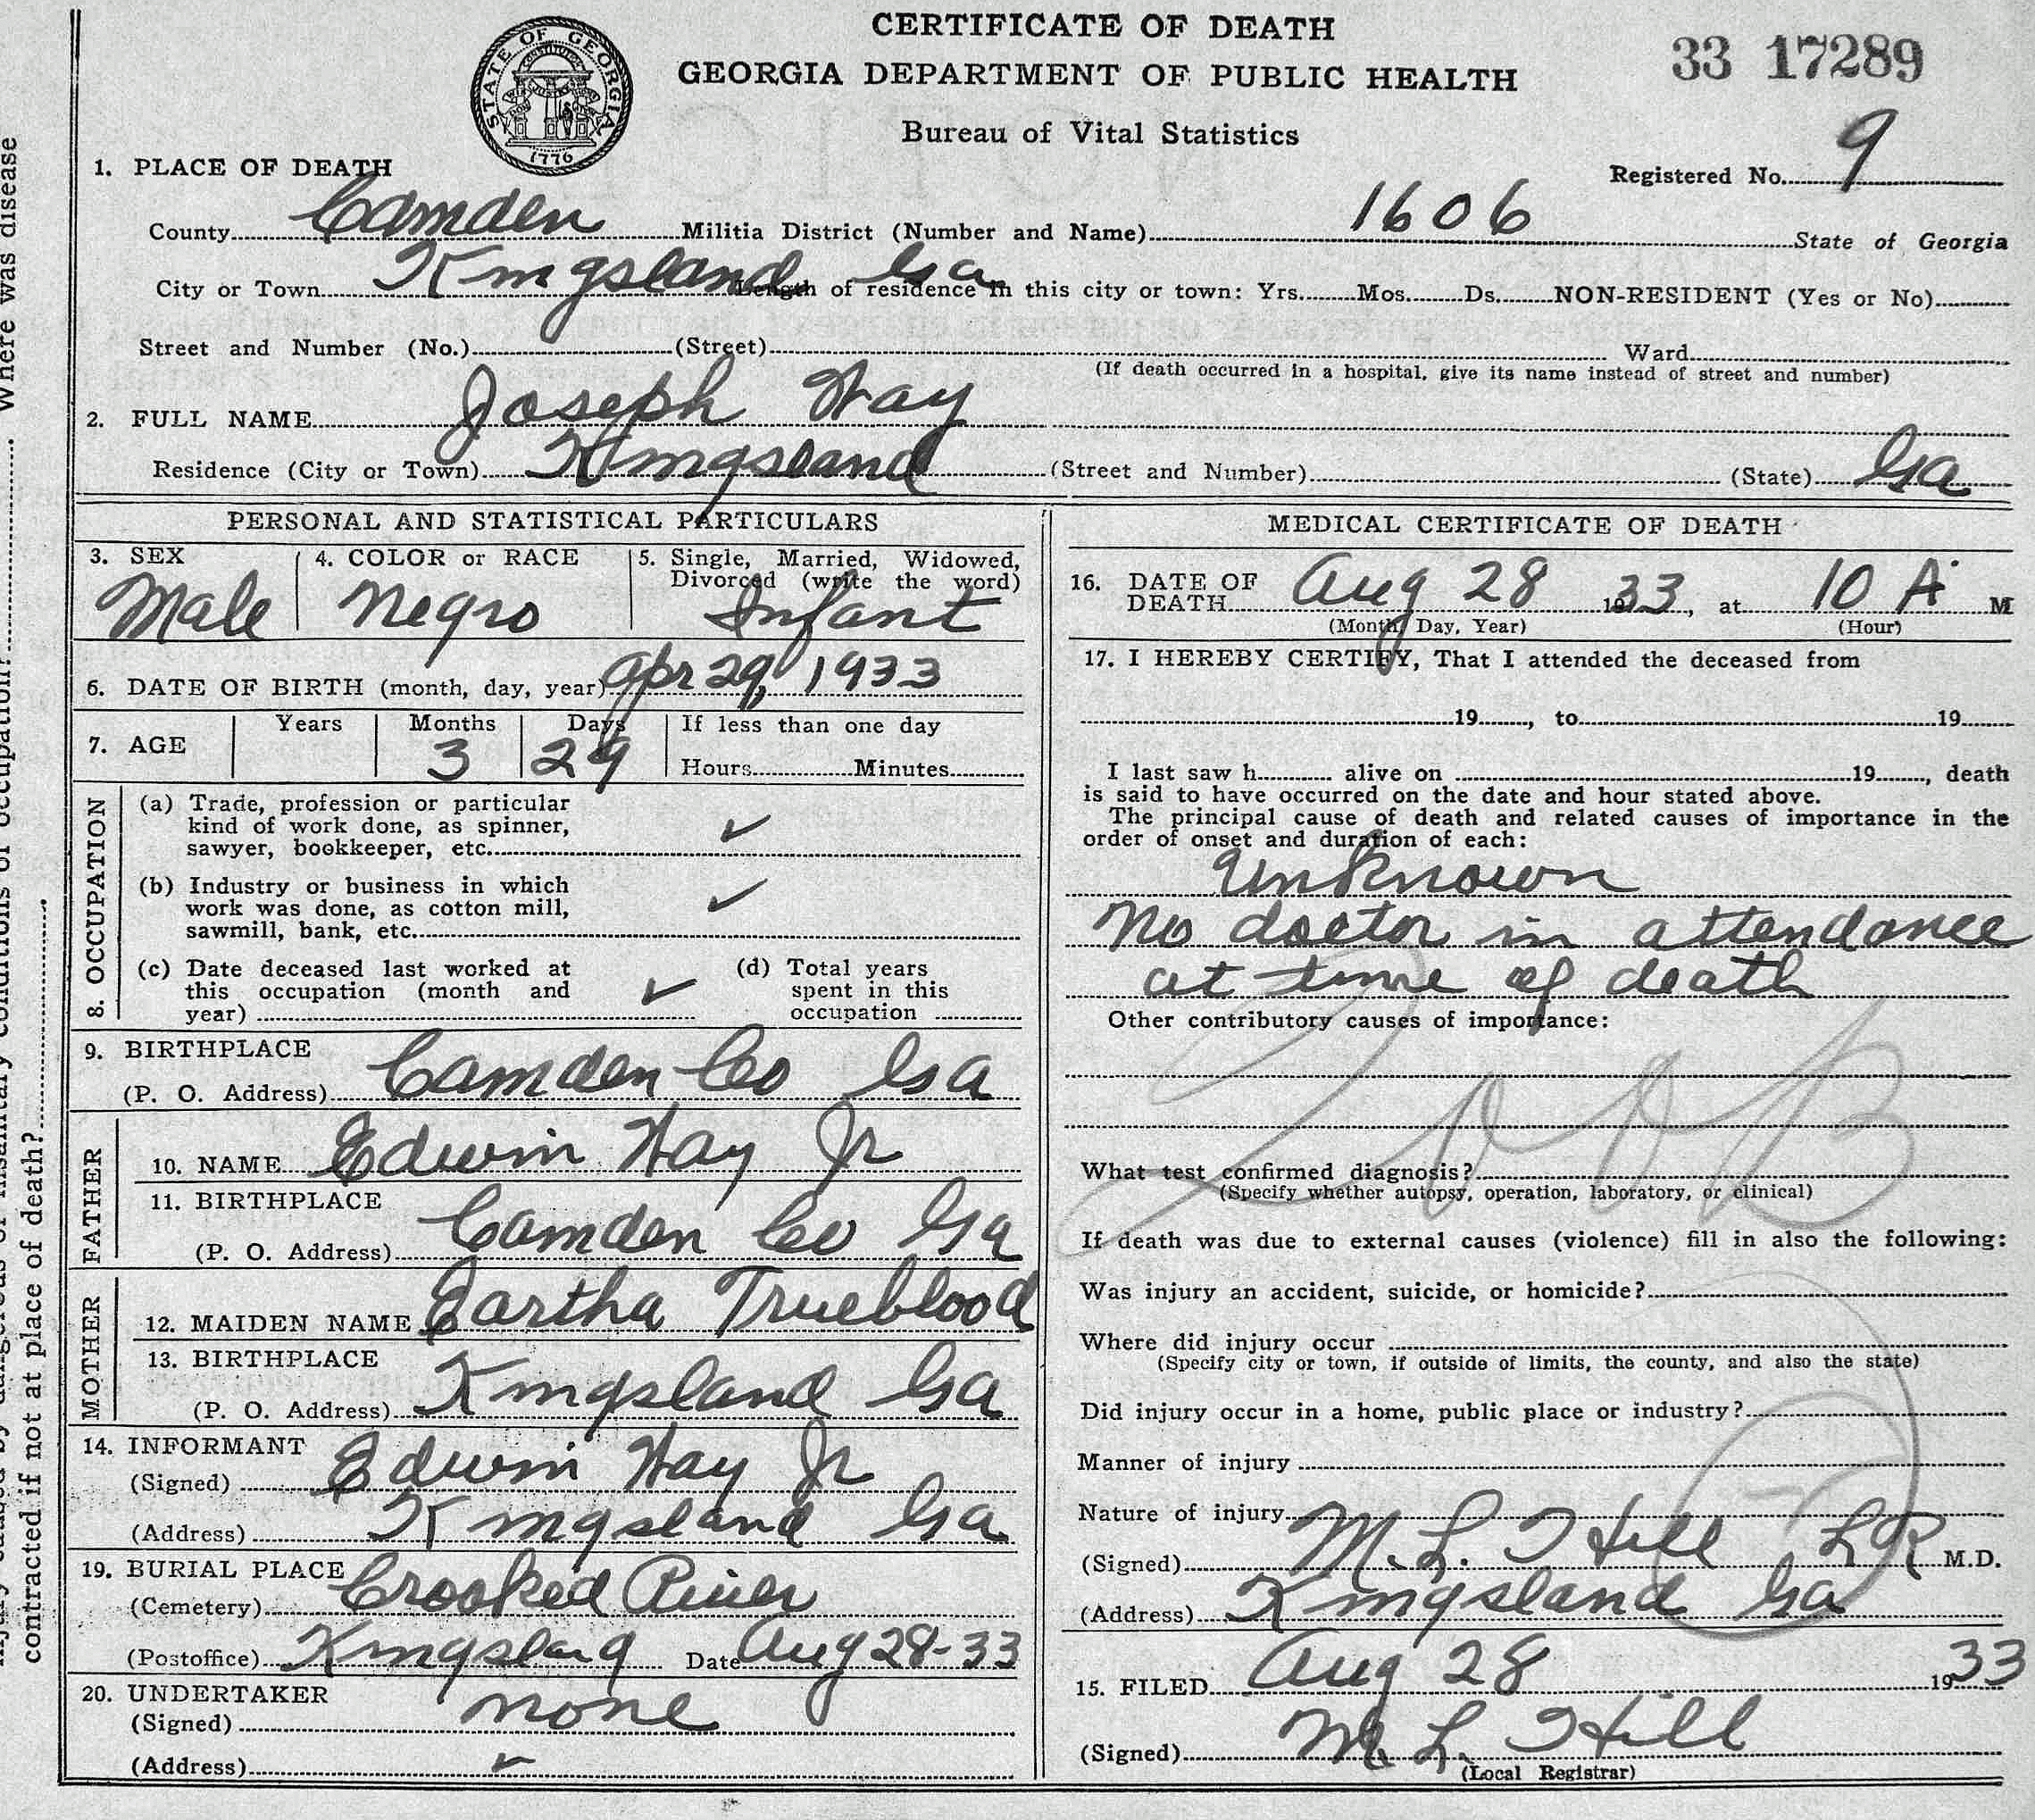 CERTIFICATE OF DEATH
GEORGIA DEPARTMENT OF PUBLIC HEALTH
Bureau of Vital Statistics
33 17289
STATE OF GEORGIA
CONSTITUTION
1776
Registered No. 9
1. PLACE OF DEATH
County Camden Militia District (Number and Name) 1606 State of Georgia
City or Town Kingsland Ga Length of residence in this city or town: Yrs. Mos. Ds. NON-RESIDENT (Yes or No)
Street and Number (No.) (Street) Ward
(If death occurred in a hospital, give its name instead of street and number)
2. FULL NAME Joseph Way
Residence (City or Town) Kingsland (Street and Number) (State) Ga
PERSONAL AND STATISTICAL PARTICULARS
3. SEX Male
4. COLOR or RACE Negro
5. Single, Married, Widowed,
Divorced (write the word)
Infant
6. DATE OF BIRTH (month, day, year) Apr 29, 1933
7. AGE Years Months 3 Days 29 If less than one day
Hours Minutes
8. OCCUPATION
(a) Trade, profession or particular
kind of work done, as spinner,
sawyer, bookkeeper, etc. ✓
(b) Industry or business in which
work was done, as cotton mill,
sawmill, bank, etc. ✓
(c) Date deceased last worked at
this occupation (month and
year) ✓
(d) Total years
spent in this
occupation
9. BIRTHPLACE
(P. O. Address) Camden Co Ga
FATHER
10. NAME Edwin Way Jr
11. BIRTHPLACE
(P. O. Address) Camden Co Ga
MOTHER
12. MAIDEN NAME Eartha Trueblood
13. BIRTHPLACE
(P. O. Address) Kingsland Ga
14. INFORMANT
(Signed) Edwin Way Jr
(Address) Kingsland Ga
19. BURIAL PLACE
(Cemetery) Crooked River
(Postoffice) Kingsland Date Aug 28-33
20. UNDERTAKER
(Signed) none
(Address) ✓
MEDICAL CERTIFICATE OF DEATH
16. DATE OF
DEATH Aug 28 1933, at 10 A M
(Month, Day, Year) (Hour)
17. I HEREBY CERTIFY, That I attended the deceased from
19, to 19
I last saw h alive on 19, death
is said to have occurred on the date and hour stated above.
The principal cause of death and related causes of importance in the
order of onset and duration of each:
Unknown
No doctor in attendance
at time of death
Other contributory causes of importance:
What test confirmed diagnosis?
(Specify whether autopsy, operation, laboratory, or clinical)
If death was due to external causes (violence) fill in also the following:
Was injury an accident, suicide, or homicide?
Where did injury occur
(Specify city or town, if outside of limits, the county, and also the state)
Did injury occur in a home, public place or industry?
Manner of injury
Nature of injury
(Signed) M. L. Hill LR M.D.
(Address) Kingsland Ga
15. FILED Aug 28 1933
(Signed) M. L. Hill
(Local Registrar)
Where was disease
contracted if not at place of death?